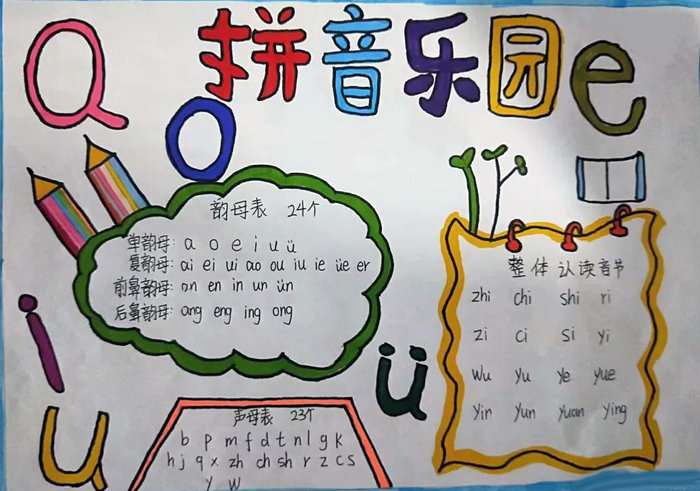 拼音乐园
a
o
e
i
u
ü
韵母表 24个
单韵母: a o e i u ü
复韵母: ai ei ui ao ou iu ie üe er
前鼻韵母: an en in un ün
后鼻韵母: ang eng ing ong
整体认读音节
zhi chi shi ri
zi ci si yi
wu yu ye yue
yin yun yuan ying
声母表 23个
b p m f d t n l g k
h j q x zh ch sh r z c s
y w